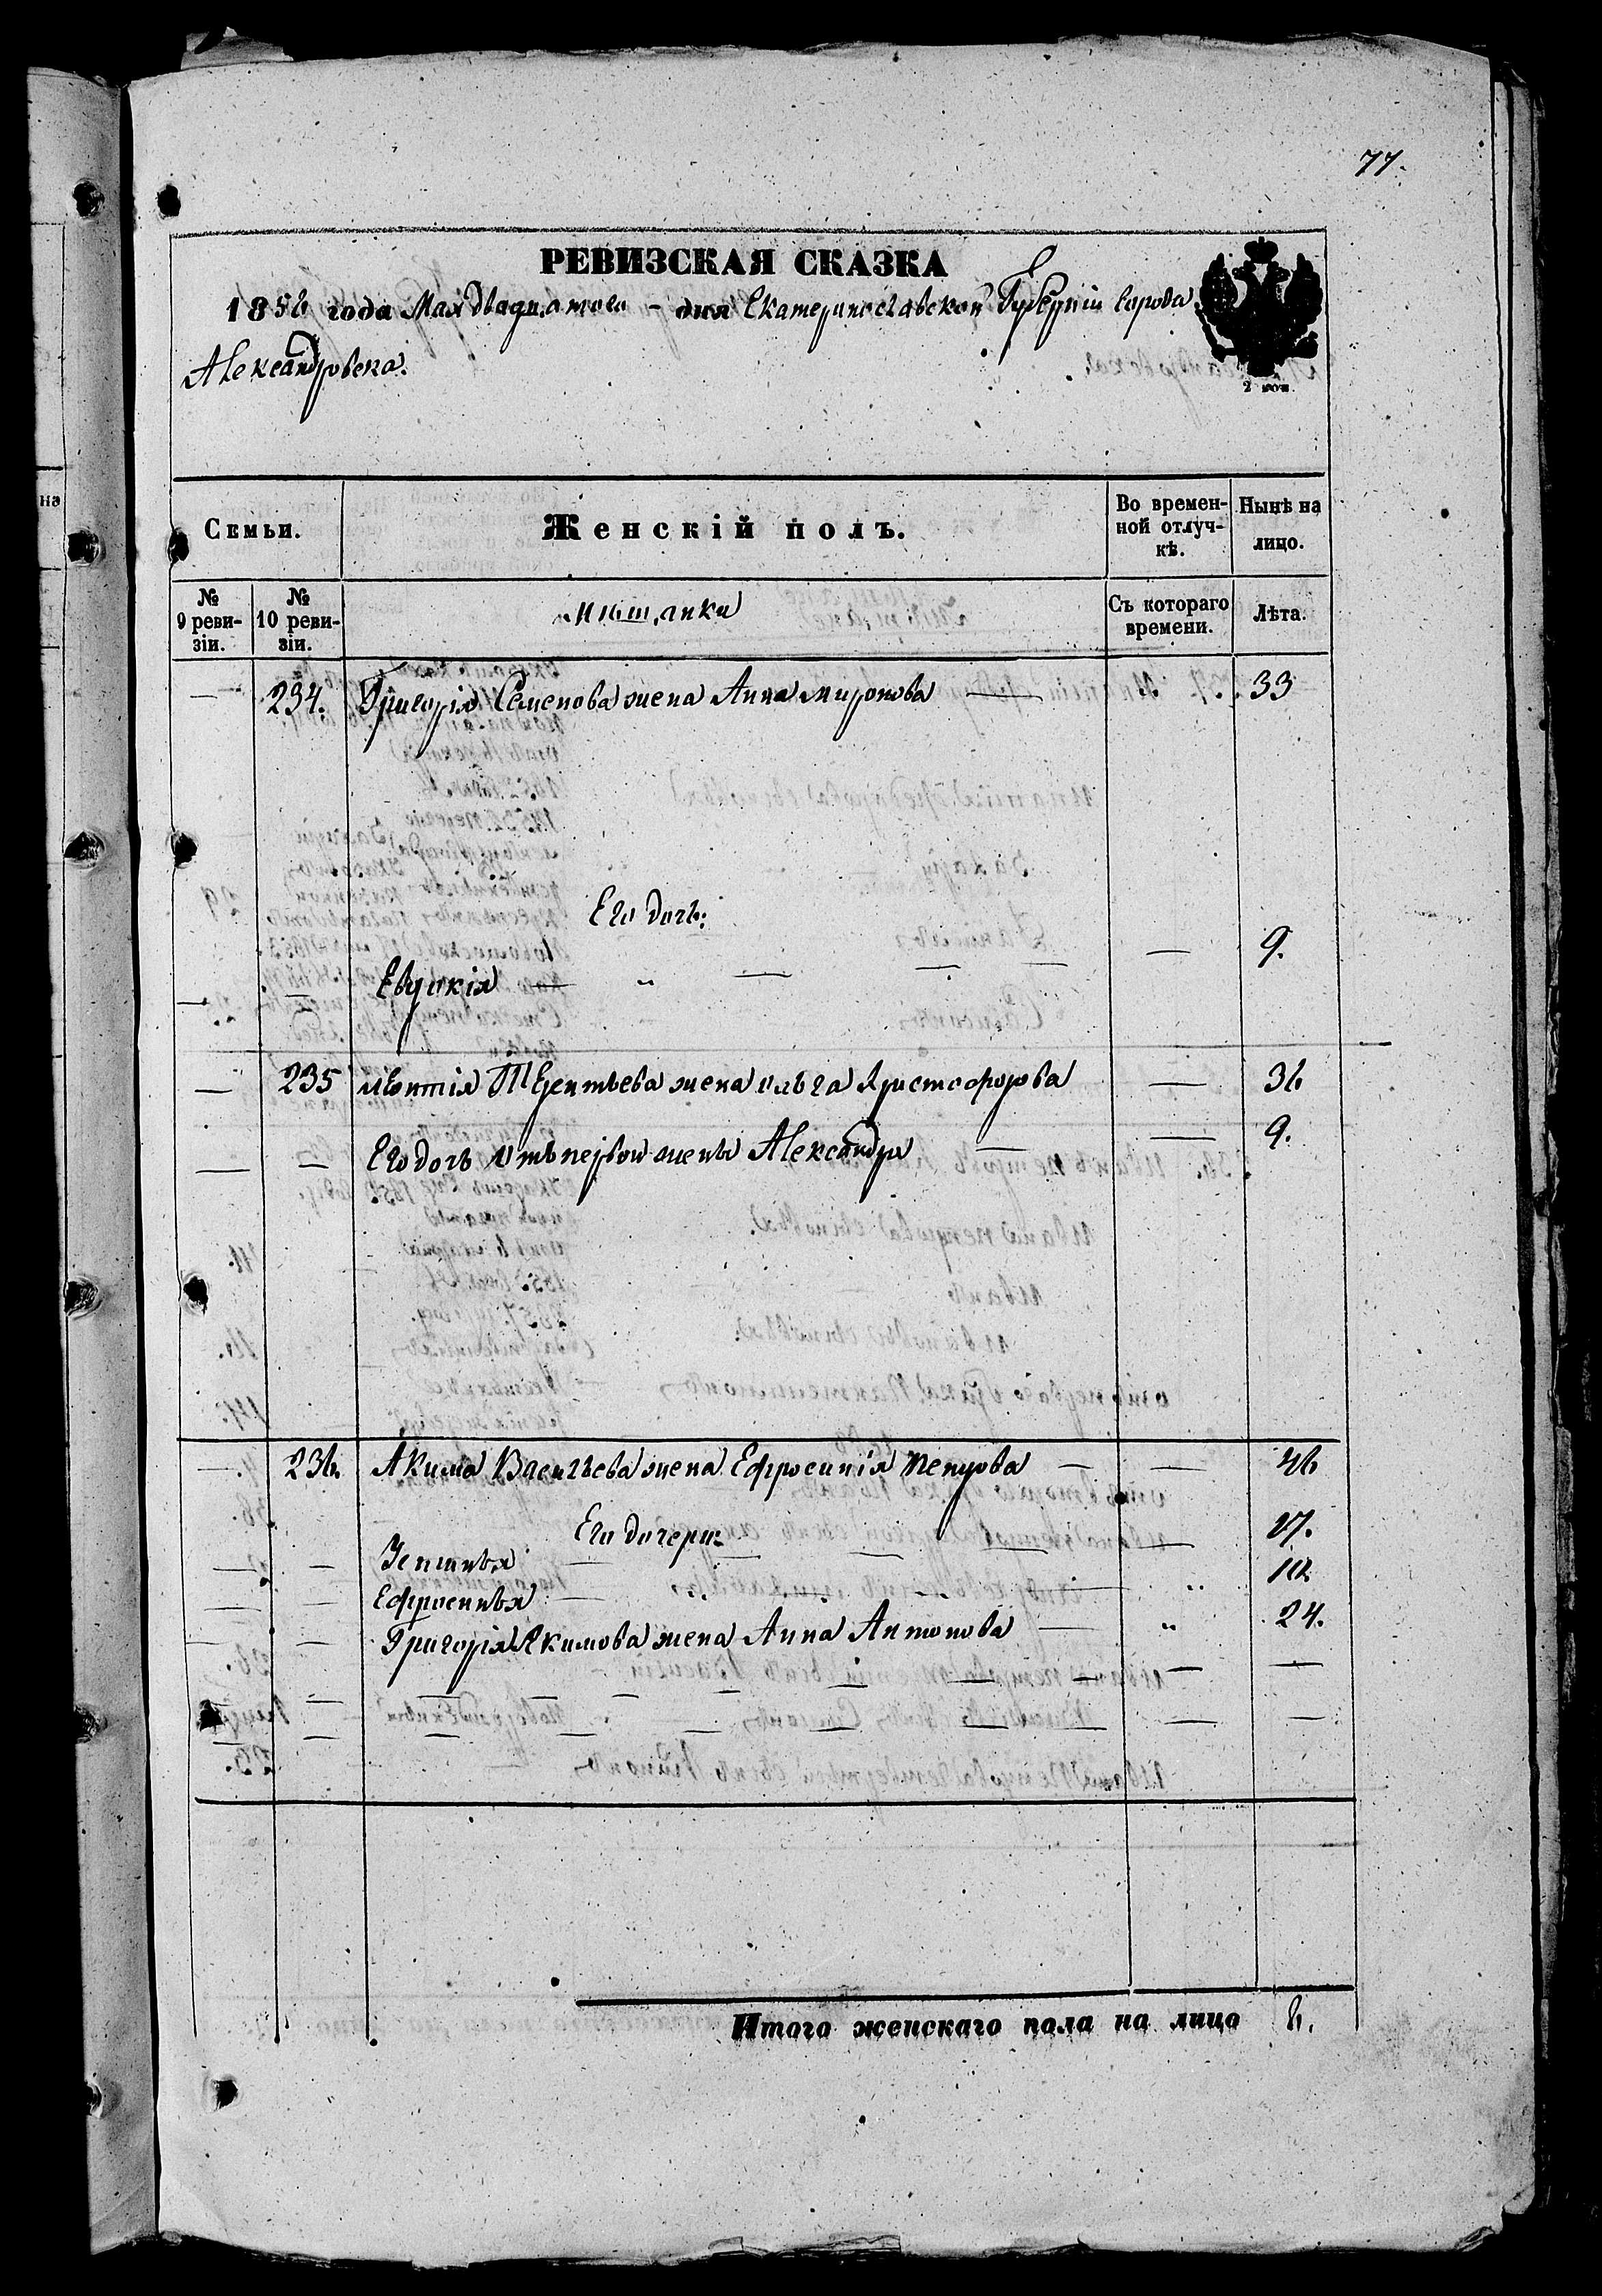 77.
РЕВИЗСКАЯ СКАЗКА
1858 года Мая двадцатого - дня Екатеринославской Губерніи города
Александровска.
2 коп.
Семьи.
Женскій полъ.
Во времен-
ной отлуч-
кѣ.
Нынѣ на
лицо.
№
9 реви-
зіи.
№
10 реви-
зіи.
мѣщанки
Съ котораго
времени.
Лѣта.
234. Григорія Семенова жена Анна миронова — 33
Его дочь:
Евдокія — 9.
235 Терентьева жена ольга Христофорова — 36
Его дочь отъ первой жены Александра — 9.
236. Акима Васильева жена Ефросинія петрова — — 46
Его дочери:
17.
Ефросинья
Григорія Якимова жена Анна Антонова — 24.
Итого женскаго пола на лицо